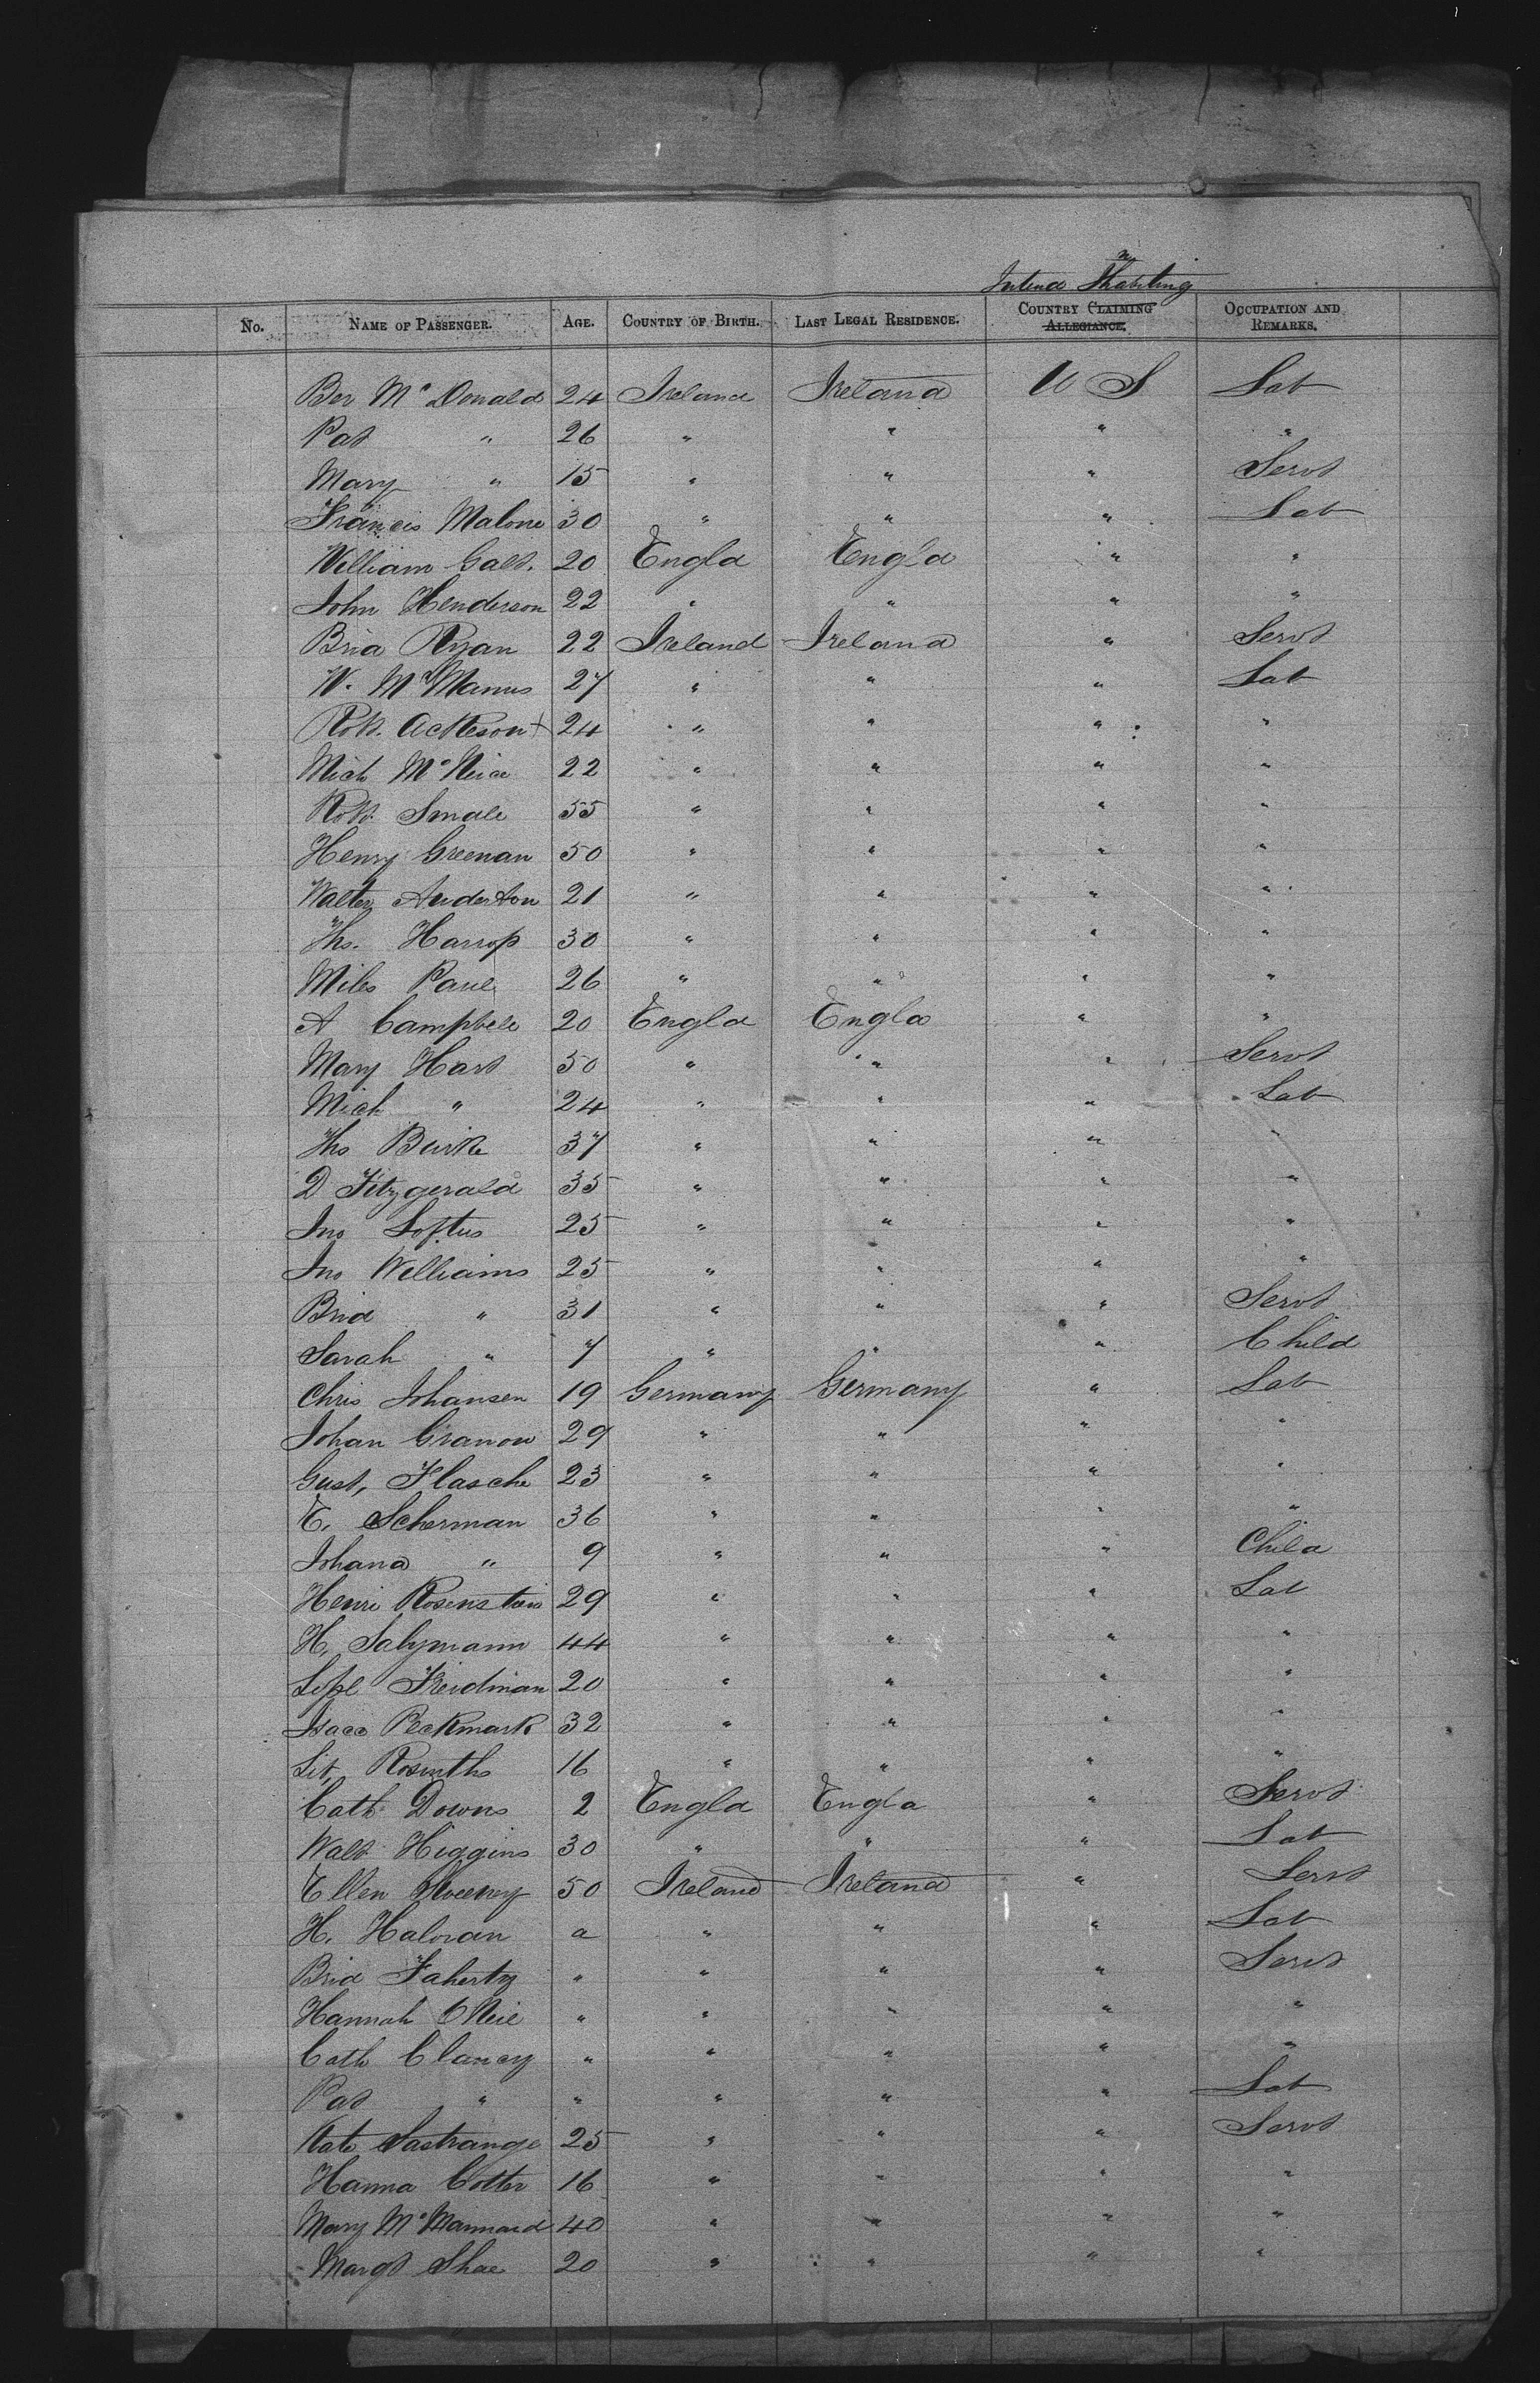 Intend
No. NAME OF PASSENGER. AGE. COUNTRY OF BIRTH. LAST LEGAL RESIDENCE. COUNTRY CLAIMING ALLEGIANCE. OCCUPATION AND REMARKS.
Ber Mc Donald 24 Ireland Ireland U S Lab
Pat " 26 " " " "
Mary " 15 " " " Servt
Francis Malone 30 " " " Lab
William Galt. 20 Engld Engld " "
John Henderson 22 " " " "
Brid Ryan 22 Ireland Ireland " Servt
W. Mc Manus 27 " " " Lab
Robt. Acheson + 24 " " " "
Mich Mc Neice 22 " " " "
Robt. Smale 55 " " " "
Henry Greenan 50 " " " "
Walter Anderton 21 " " " "
Ths. Harrop 30 " " " "
Miles Paul 26 " " " "
A Campbell 20 Engld Engld " "
Mary Hart 50 " " " Servt
Mich " 24 " " " Lab
Ths Burke 37 " " " "
D Fitzgerald 35 " " " "
Jno Loftus 25 " " " "
Jno Williams 25 " " " "
Brid " 31 " " " Servt
Sarah " 7 " " " Child
Chris Johansen 19 Germany Germany " Lab
Johan Granow 29 " " " "
Gust, Flasche 23 " " " "
E. Scherman 36 " " " "
Johana " 9 " " " Child
Henri Rosenstein 29 " " " Lab
H, Salzmann 44 " " " "
Freidman 20 " " " "
Isaac Beckmark 32 " " " "
Rosenths 16 " " " "
Cath Downs 2 Engld Engld " Servt
Walt Higgins 30 " " " Lab
Ellen Sweeny 50 Ireland Ireland " Servt
H. Haloran a " " " Lab
Brid Faherty " " " " Servt
Hannah O Neil " " " " "
Cath Clancy " " " " "
Pat " " " " " Lab
Kate Sastrange 25 " " " Servt
Hanna Cotter 16 " " " "
Mary Mc 40 " " " "
Margt Shae 20 " " " "